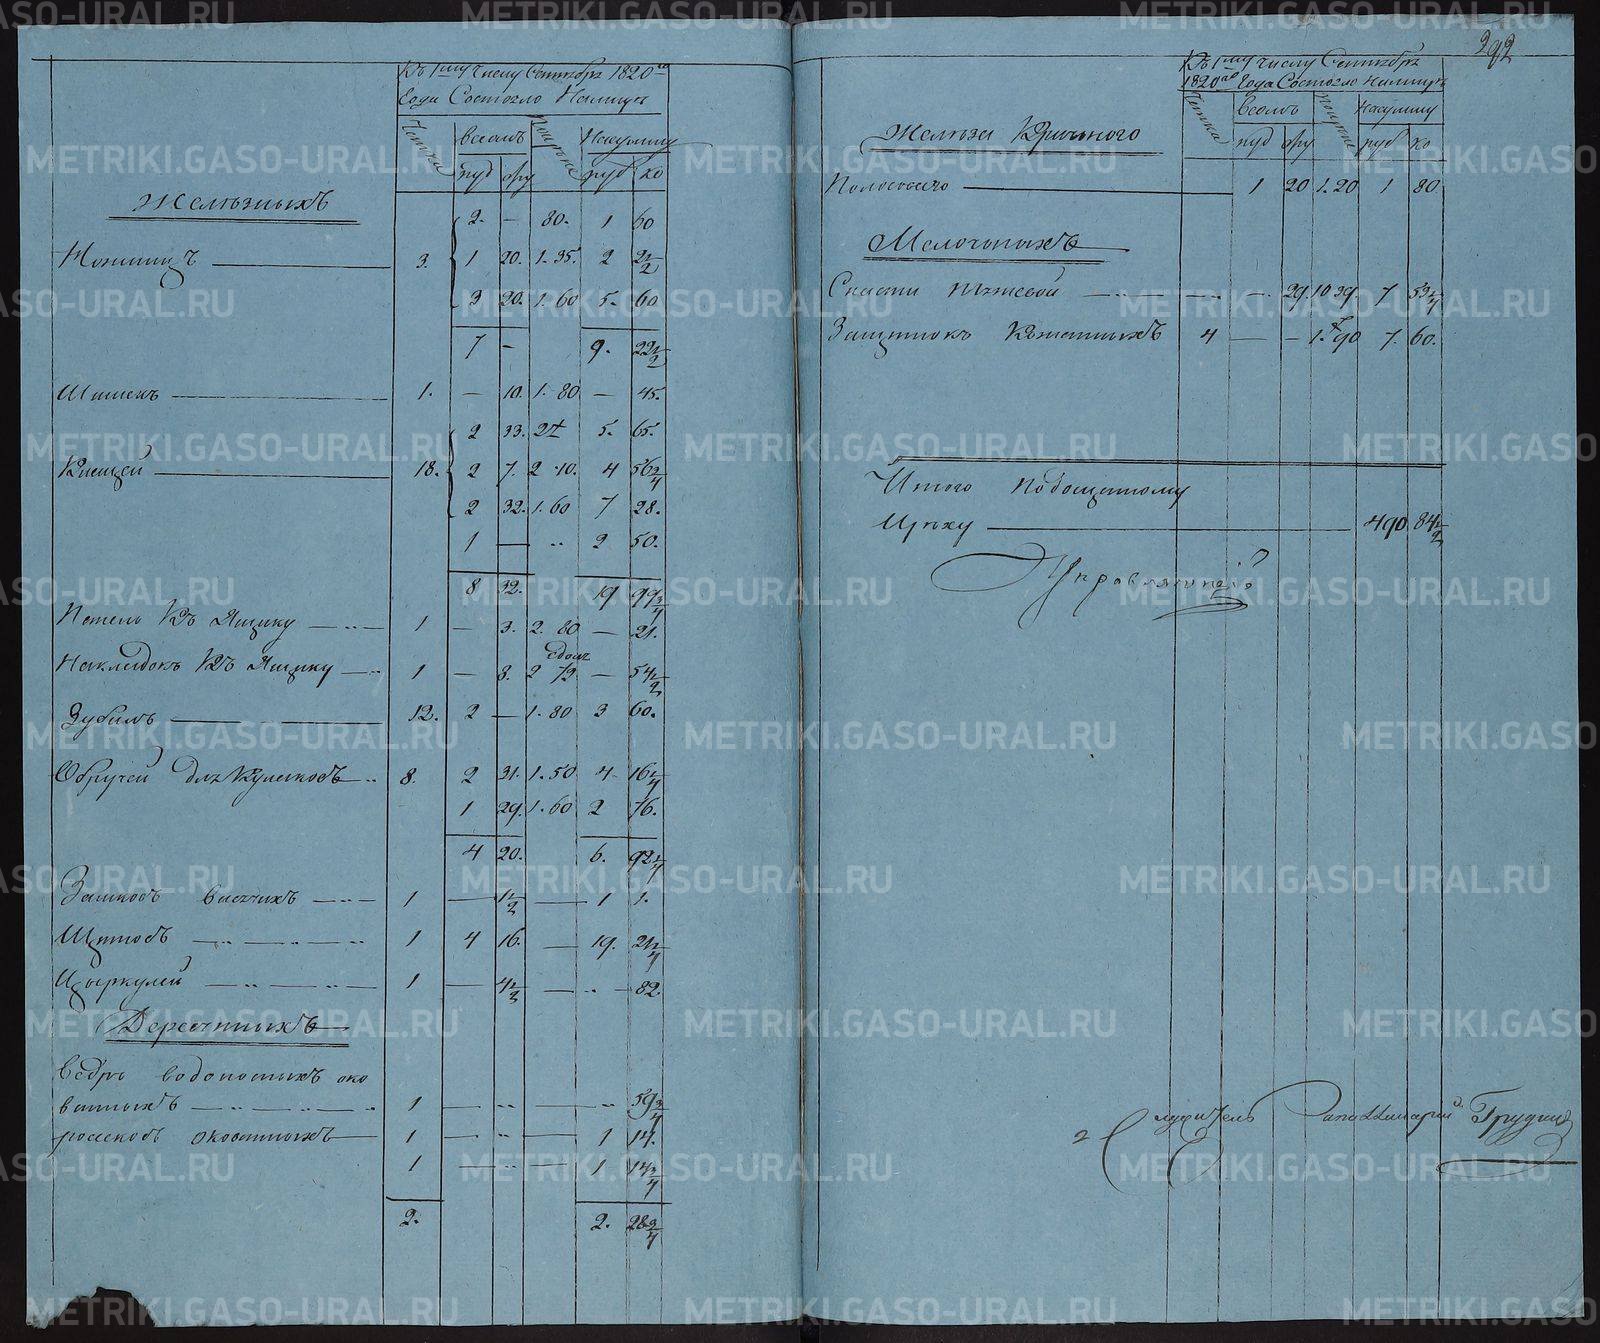 292
Къ 1му числу Сентября 1820го
Года Состояло Налицо
Весомъ
На сумму
пуд фу руб ко
Железныхъ
2 — 80. 1 60
Ножницъ 3. 1 20. 1. 35. 2 2 1/2
3 20. 1. 60 5. 60
7 — 9. 22 1/2
1. — 10. 1. 80 — 45.
2 33. 2 5. 65.
Клещей 18. 2 7. 2. 10. 4 56 3/4
2 32. 1. 60 7 28.
1 — „ 2 50.
8 32. 19 99 3/4
Петель Къ Ящику 1 — 3. 2. 80 — 21.
Накладокъ Къ Ящику 1 — 8. 2 72 — 54 1/2
Зубилъ 12. 2 — 1. 80 3 60.
Обручей для 8. 2 31. 1. 50 4 16 1/4
1 29. 1. 60 2 76.
4 20. 6. 92 1/4
Замковъ висячихъ 1 — 1 1/2 — 1 1.
1 4 16. — 19. 21 1/4
Цыркулей 1 — 4 1/2 — „ — 82
Деревянныхъ
Ведръ водоносныхъ око
ванныхъ 1 — „ — „ 59 3/4
окованныхъ 1 — „ — 1 14.
1 — „ — 1 14 3/4
2. 2. 28 3/4
Къ 1му числу Сентября
1820го Года Состояло Налицо
Весомъ
На сумму
пуд фу руб ко
Железа Кричного
Полосового 1 20 1. 20 1 80
Мелочныхъ
Снасти 29. 10 39. 7 53 1/4
4 — — 1. 90 7. 60.
Итого По
490 84 1/2
Управляющій
Служитель Грудинъ
METRIKI.GASO-URAL.RU